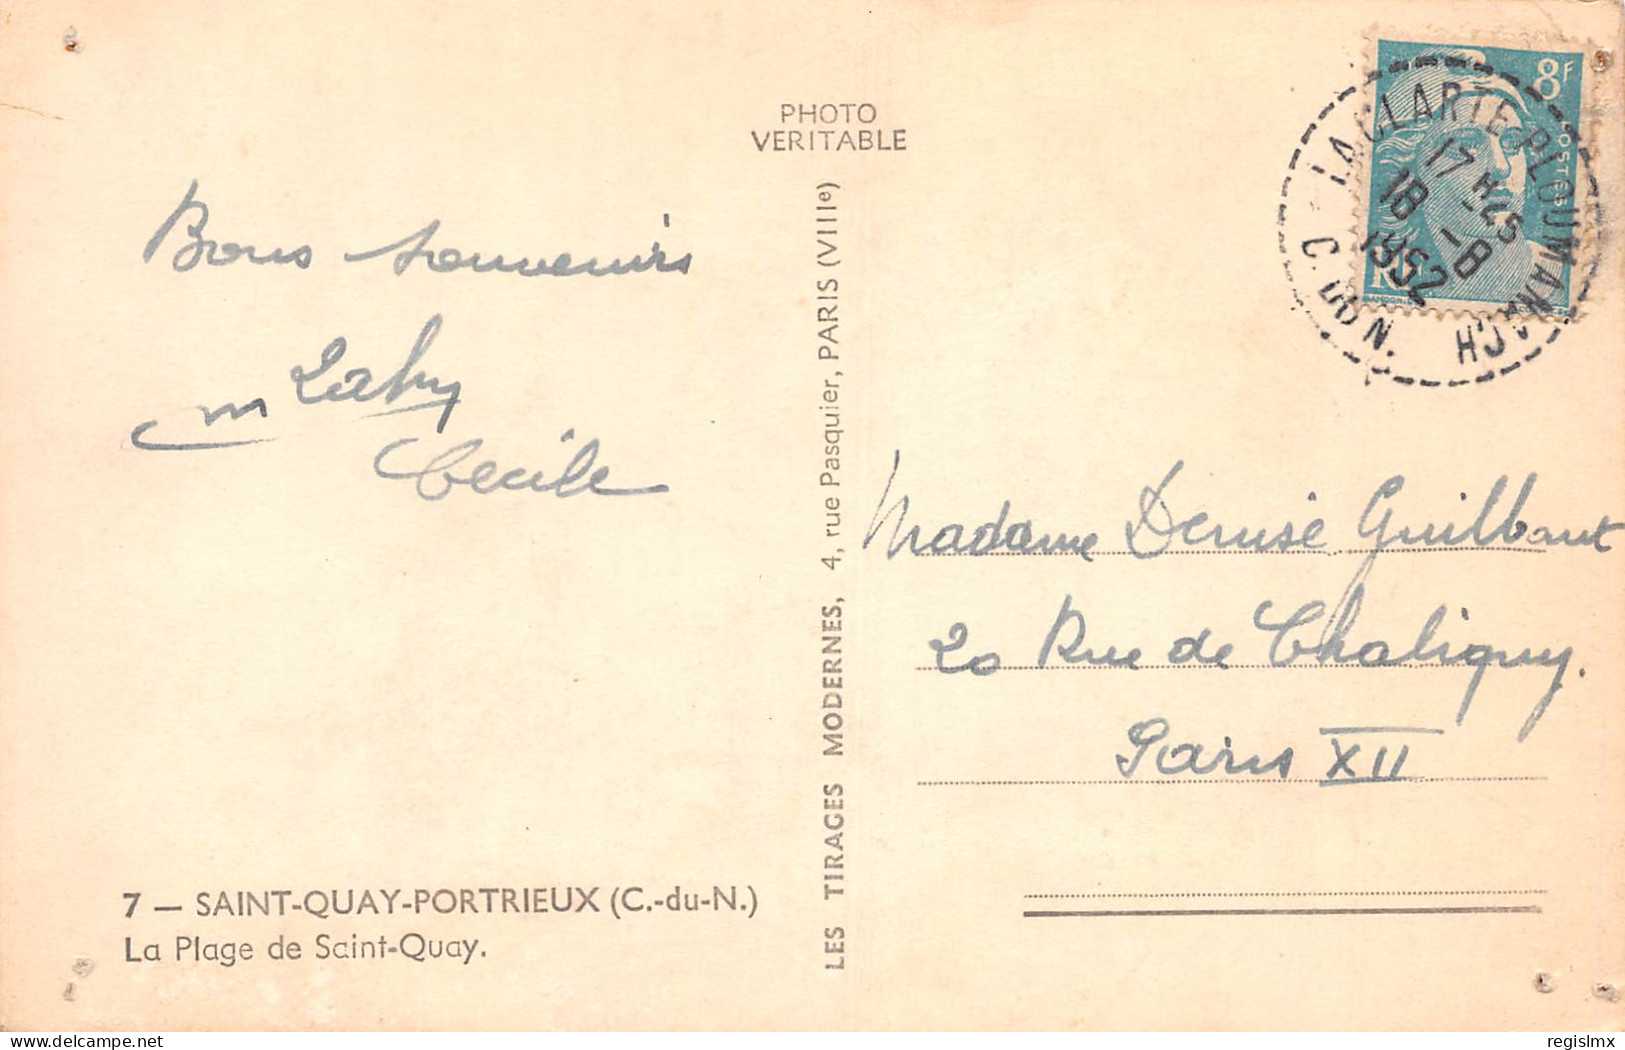 PHOTO
VERITABLE
Bons souvenirs
Cécile
7 — SAINT-QUAY-PORTRIEUX (C.-du-N.)
La Plage de Saint-Quay.
LES TIRAGES MODERNES, 4, rue Pasquier, PARIS (VIIIe)
8F
POSTES
LA CLARTE-PLOUMANAC'H
17 H 45
18 -8
1952
C. DU N.
Madame Denise Guilbaut
20 Rue de Chaligny.
Paris XII
regislmx